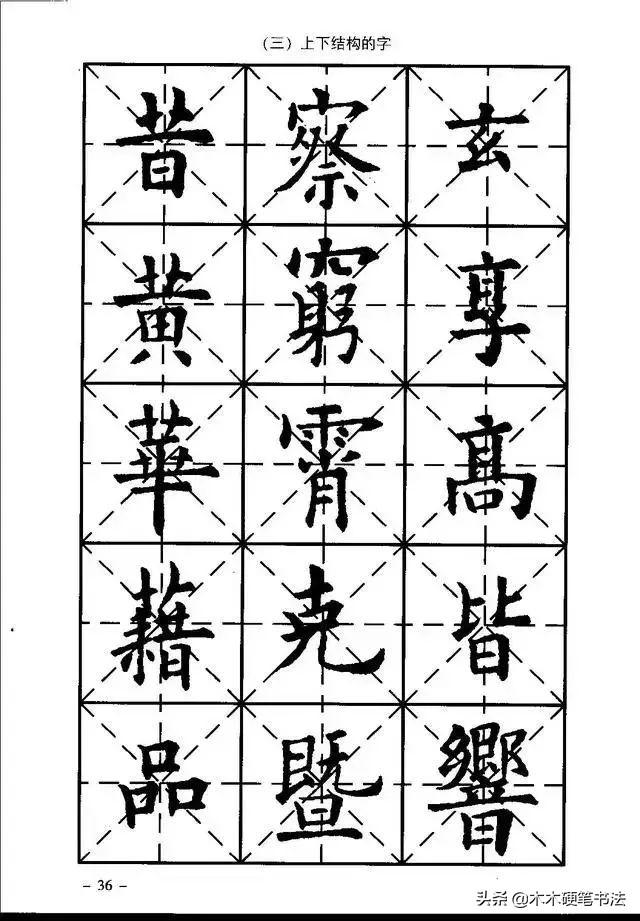 （三）上下结构的字
玄享髙皆響
察窮霄尭暨
昔黄華藉品
- 36 -
头条 @木木硬笔书法